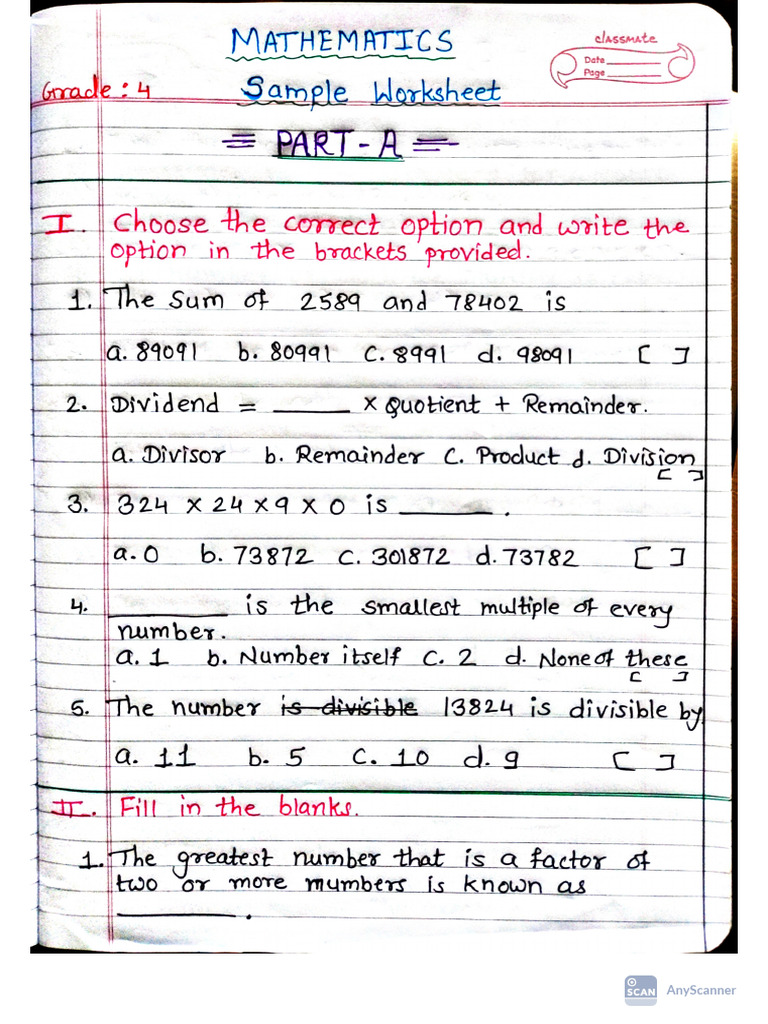 MATHEMATICS
classmate
Date
Page
Grade : 4
Sample Worksheet
PART - A
I. Choose the correct option and write the
option in the brackets provided.
1. The Sum of 2589 and 78402 is
a. 89091 b. 80991 c. 8991 d. 98091 [ ]
2. Dividend = ______ × Quotient + Remainder.
a. Divisor b. Remainder c. Product d. Division
[ ]
3. 324 × 24 × 9 × 0 is ________ .
a. 0 b. 73872 c. 301872 d. 73782 [ ]
4. __________ is the smallest multiple of every
number.
a. 1 b. Number itself c. 2 d. None of these
[ ]
5. The number is divisible 13824 is divisible by
a. 11 b. 5 c. 10 d. 9 [ ]
II. Fill in the blanks.
1. The greatest number that is a factor of
two or more numbers is known as
__________ .
SCAN AnyScanner